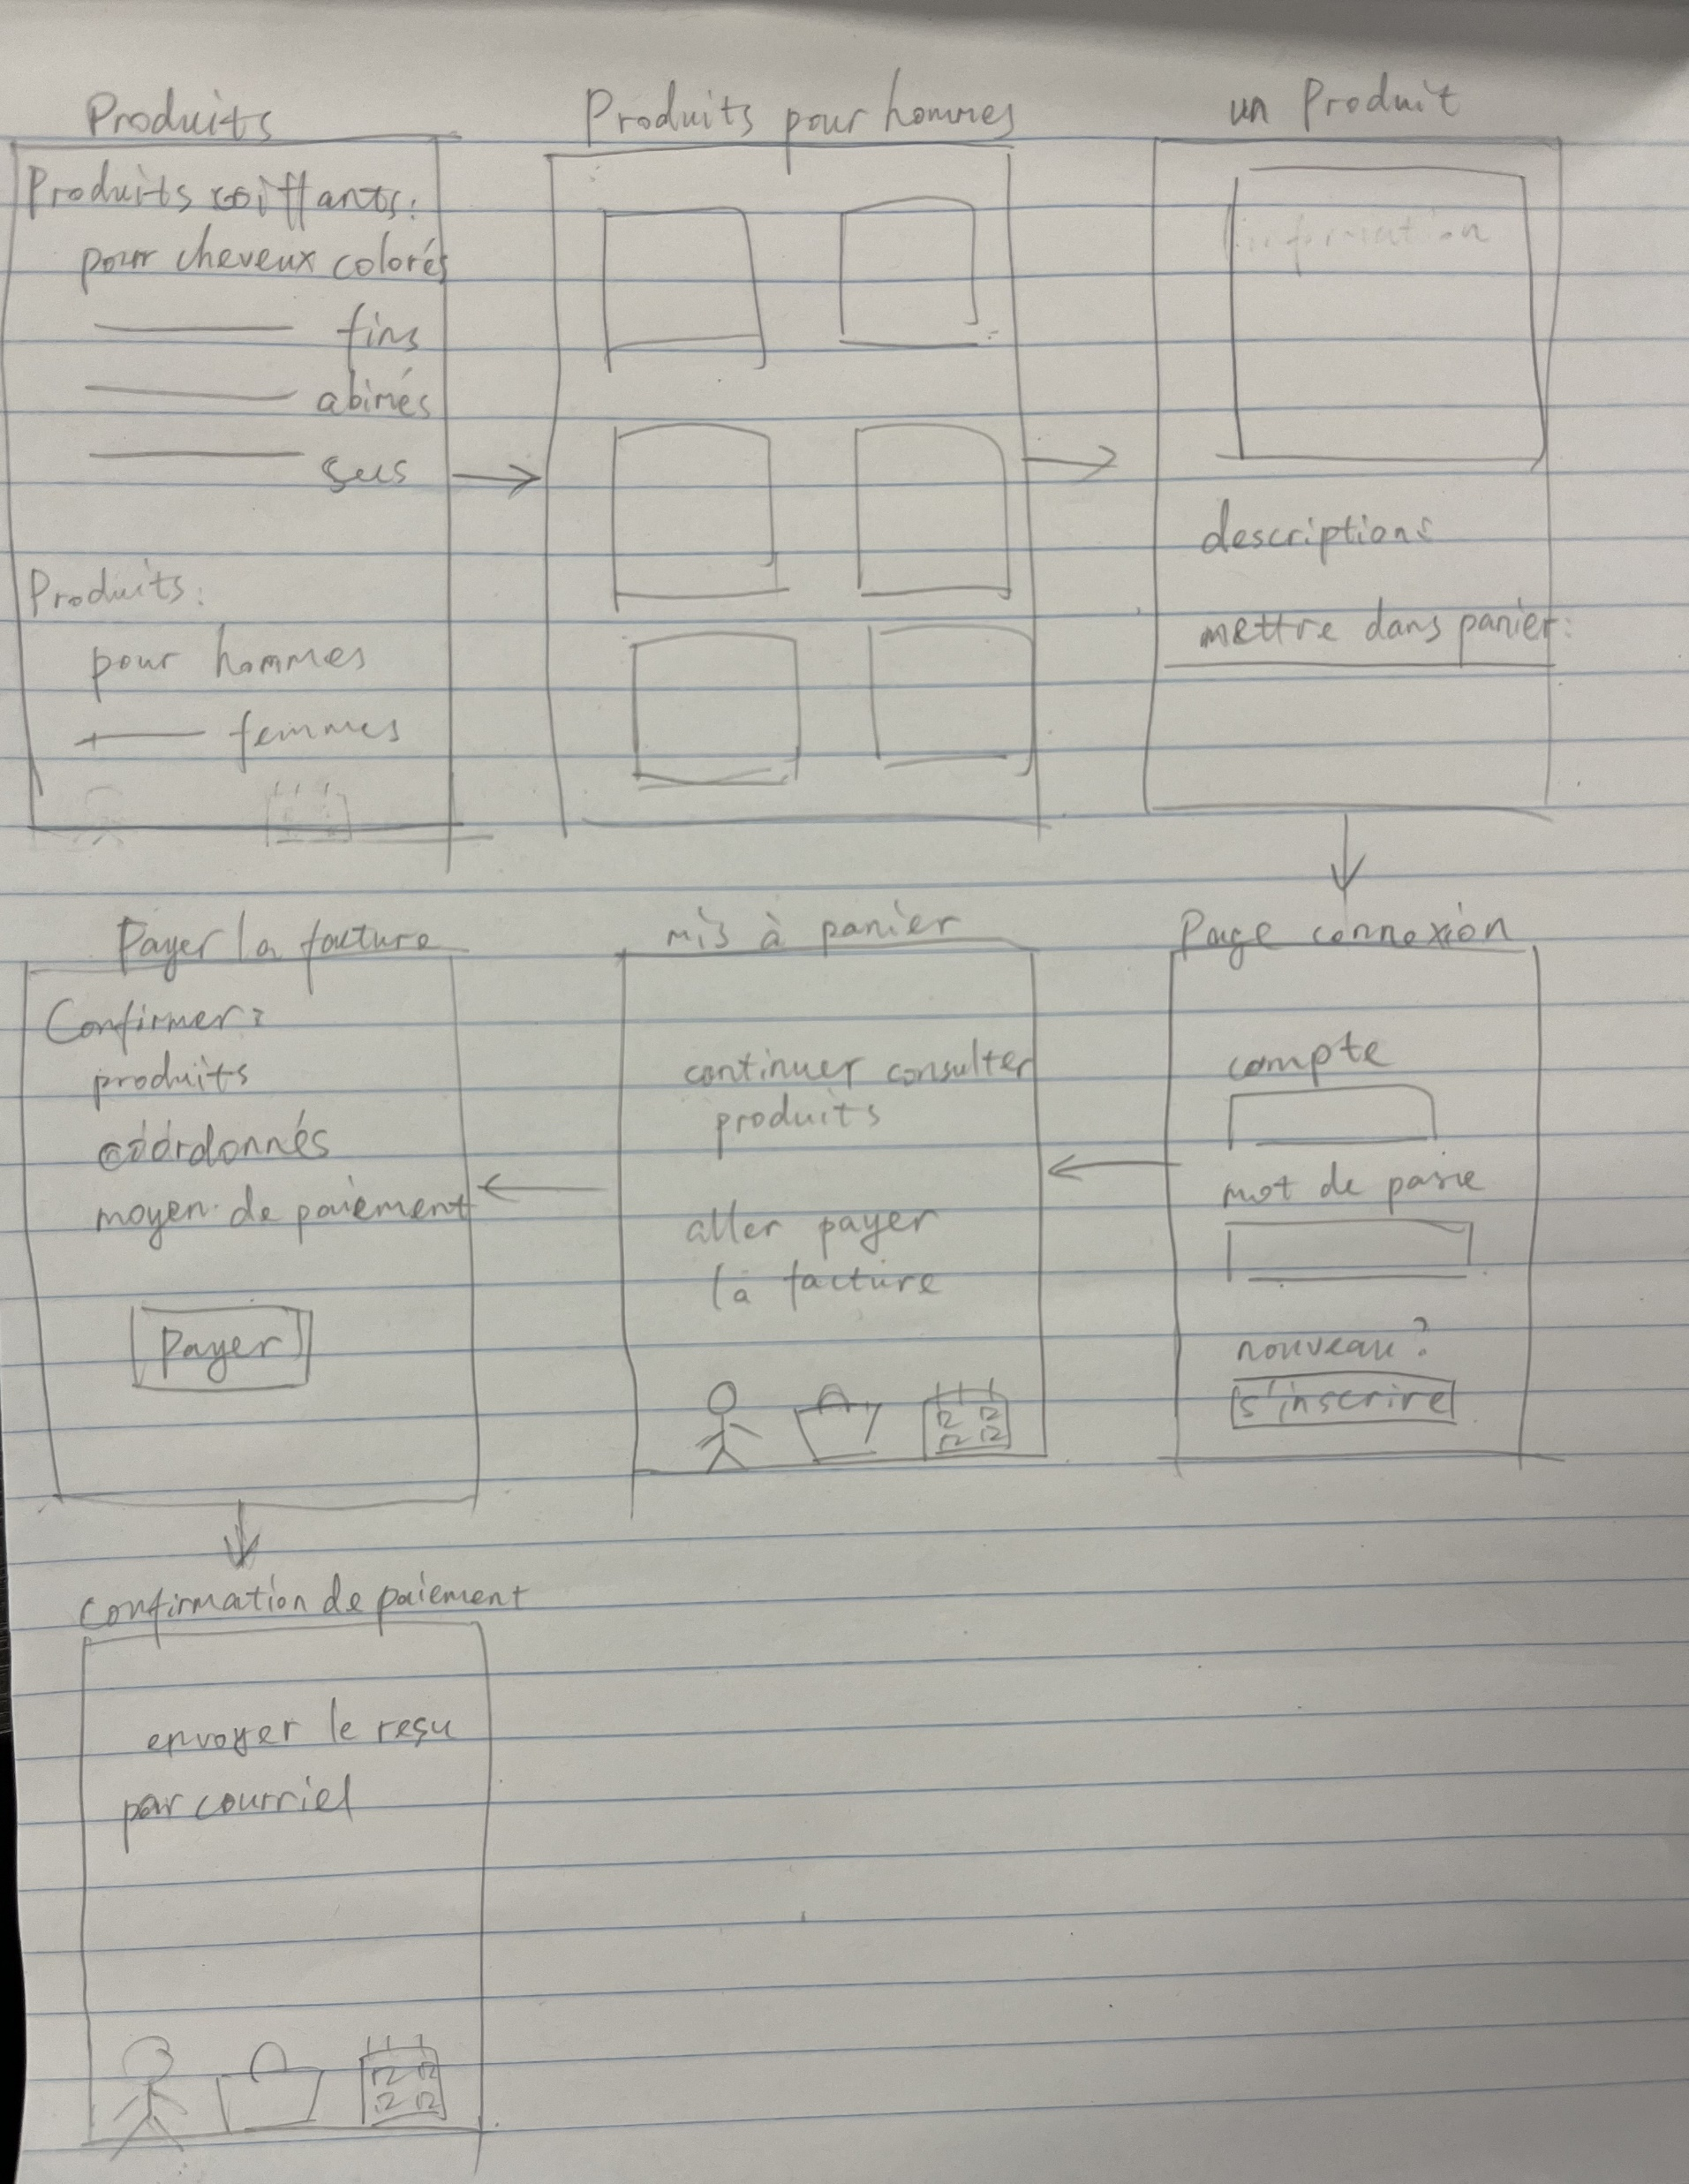 Produits
Produits coiffants:
pour cheveux colorés
fins
abimés
secs
Produits:
pour hommes
femmes
Produits pour hommes
un Produit
information
descriptions
mettre dans panier:
Page connexion
compte
mot de passe
nouveau?
s'inscrire
mis à panier
continuer consulter
produits
aller payer
la facture
12 12
12 12
Payer la facture
Confirmer:
produits
coordonnés
moyen de paiement
Payer
Confirmation de paiement
envoyer le reçu
par courriel
12 12
12 12